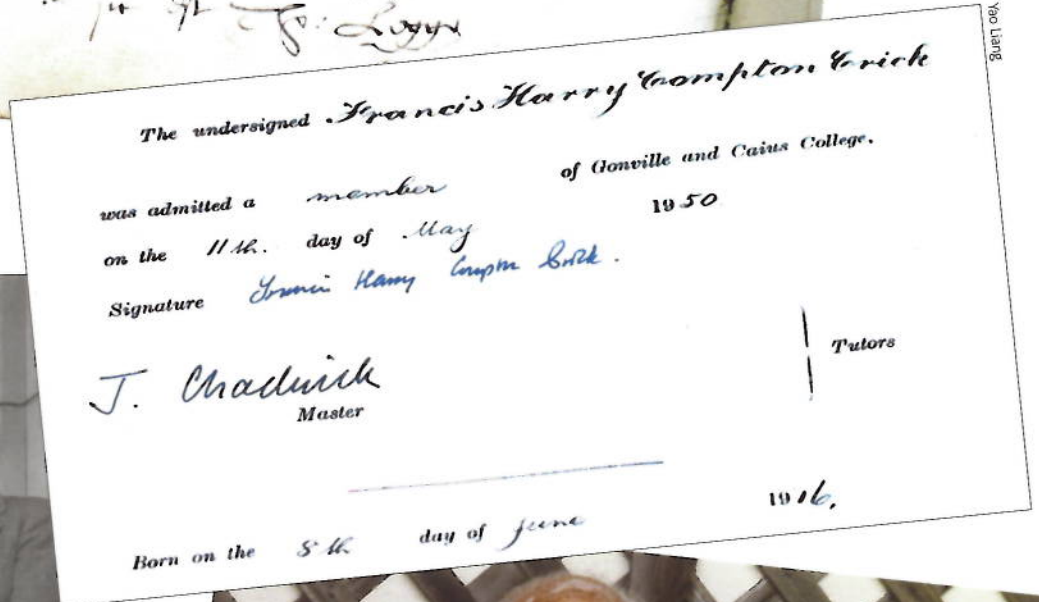 The undersigned Francis Harry Compton Crick
was admitted a member of Gonville and Caius College.
on the 11th. day of May 1950
Signature Francis Harry Compton Crick.
J. Chadwick
Master
Tutors
Born on the 8th day of June 1916.
Yao Liang